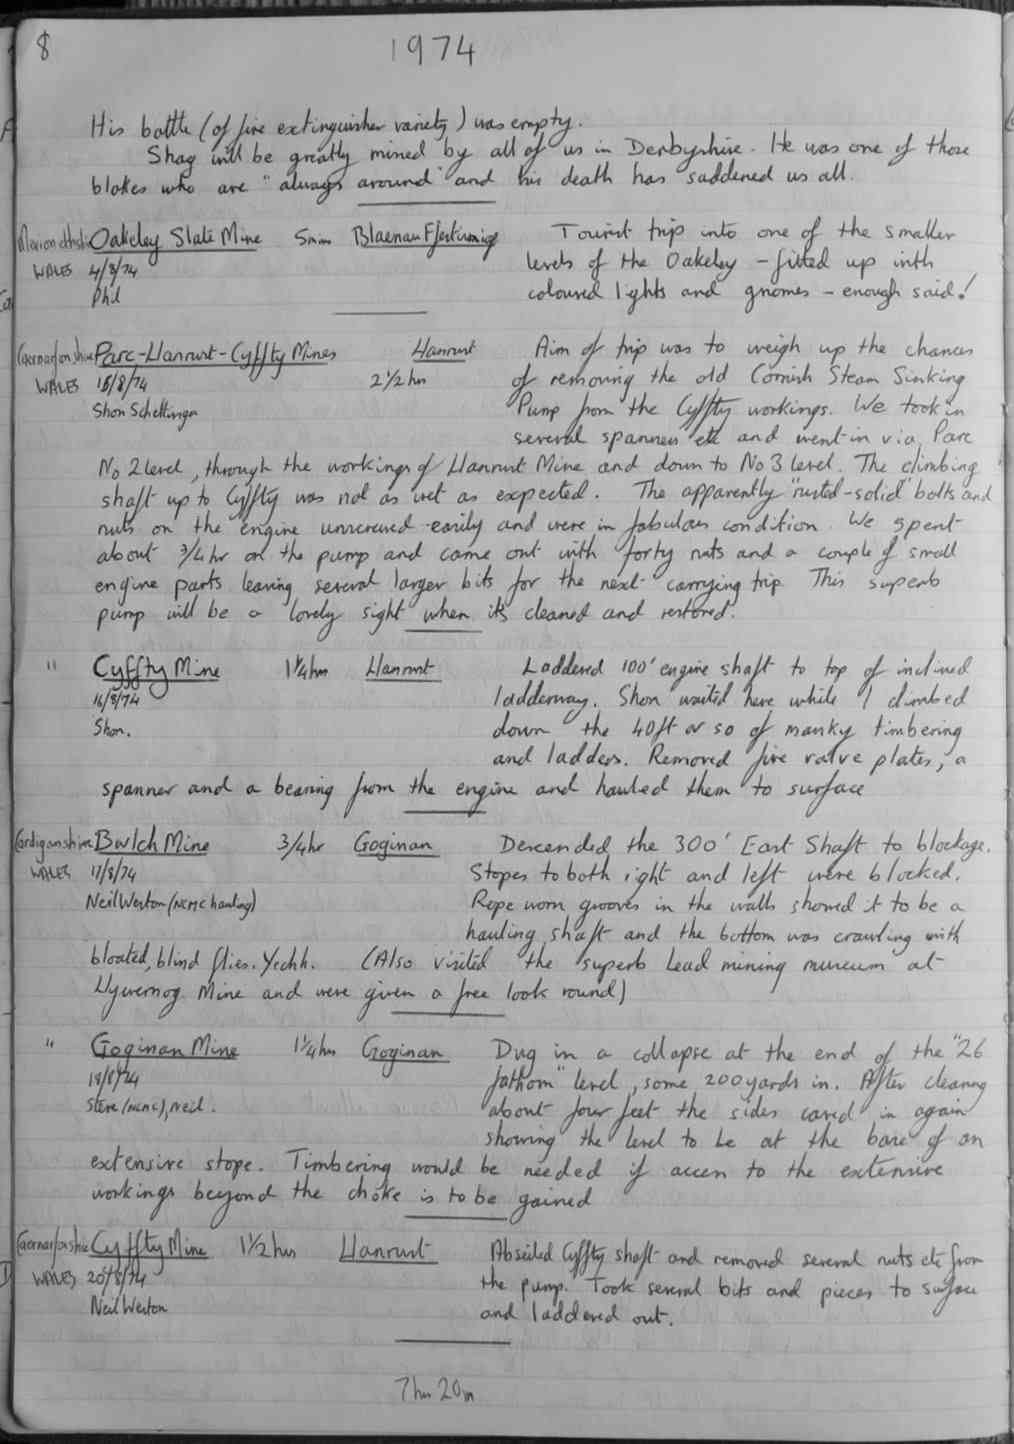 8
1974
His bottle (of fire extinguisher variety) was empty.
Shag will be greatly mined by all of us in Derbyshire. He was one of those
blokes who are "always around" and his death has saddened us all.
Oakeley Slate Mine 5min Blaenau Ffestiniog Tourist trip into one of the smaller
WALES 4/8/74 levels of the Oakeley - fitted up with
Phil coloured lights and gnomes - enough said!
Caernarfonshire Parc-Llanrwst-Cyffty Mines Llanrwst Aim of trip was to weigh up the chances
WALES 15/8/74 2 1/2 hrs of removing the old Cornish Steam Sinking
Shon Schellinger Pump from the Cyffty workings. We took in
several spanners etc and went in via Parc
No 2 level, through the workings of Llanrwst Mine and down to No 3 level. The climbing
shaft up to Cyffty was not as wet as expected. The apparently "rusted-solid" bolts and
nuts on the engine unscrewed easily and were in fabulous condition. We spent
about 3/4 hr on the pump and came out with forty nuts and a couple of small
engine parts leaving several larger bits for the next carrying trip. This superb
pump will be a lovely sight when its cleaned and restored.
" Cyffty Mine 1 1/4 hrs Llanrwst Laddered 100' engine shaft to top of inclined
16/8/74 ladderway. Shon waited here while I climbed
Shon. down the 40ft or so of manky timbering
and ladders. Removed five valve plates, a
spanner and a bearing from the engine and hauled them to surface
Cardiganshire Bwlch Mine 3/4 hr Goginan Descended the 300' East Shaft to blockage.
WALES 17/8/74 Stopes to both right and left were blocked.
Neil Weston (NCMC hauling) Rope worn grooves in the walls showed it to be a
hauling shaft and the bottom was crawling with
bloated, blind flies. Yechh. (Also visited the superb Lead mining museum at
Llywernog Mine and were given a free look round)
" Goginan Mine 1 1/4 hrs Goginan Dug in a collapse at the end of the "26
18/8/74 fathom" level, some 200 yards in. After clearing
Steve (NCMC), Neil. about four feet the sides caved in again
showing the level to be at the base of an
extensive stope. Timbering would be needed if access to the extensive
workings beyond the choke is to be gained
Caernarfonshire Cyffty Mine 1 1/2 hrs Llanrwst Abseiled Cyffty shaft and removed several nuts etc from
WALES 20/8/74 the pump. Took several bits and pieces to surface
Neil Weston and laddered out.
7hrs 20m